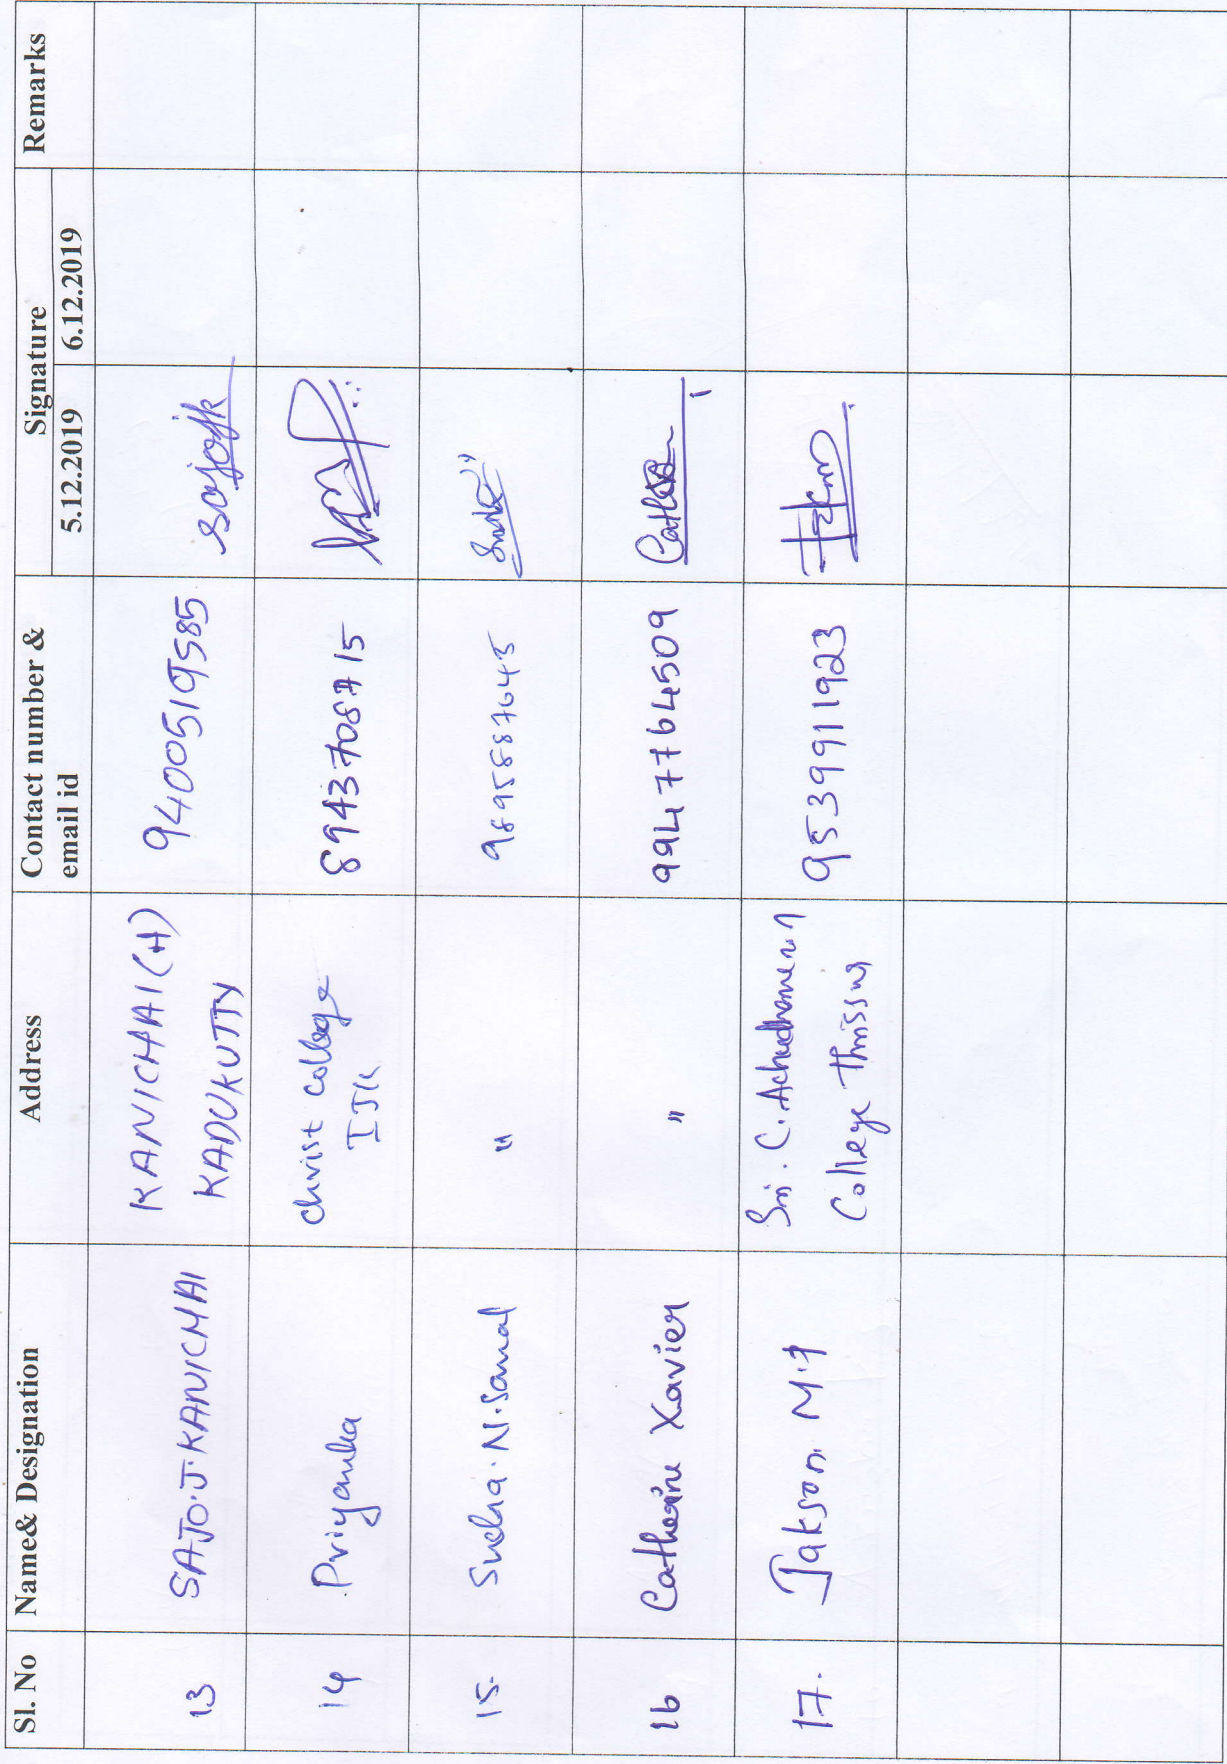 Sl. No Name& Designation Address Contact number & email id Signature Remarks
5.12.2019 6.12.2019
13 SAJO.J.KANICHAI KANICHAI(H) KADUKUTTY 9400519585 sajojk
14 Priyanka christ college IJK 8943708715
15. Sneha.N.Sanal " 9895887645
16 Catherine Xavier " 9947764509
17. Jakson M.J Sri. C. Achuthamenon College Thrissur 9539911923